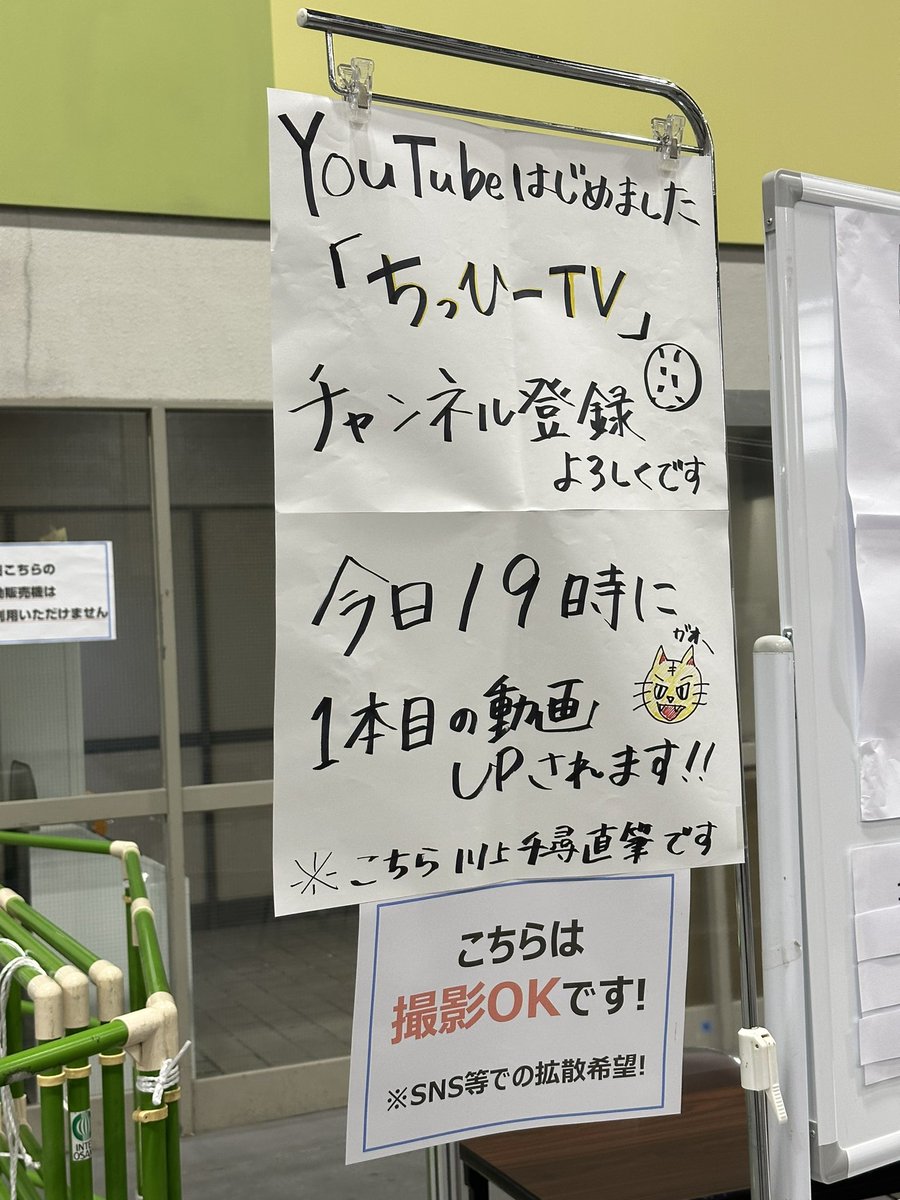 YouTubeはじめました
「ちっひーTV」
チャンネル登録
よろしくです
今日19時に
がオー
1本目の動画
UPされます!!
※こちら川上千尋直筆です
こちらは
撮影OKです!
※SNS等での拡散希望!
こちらの
販売機は
利用いただけません